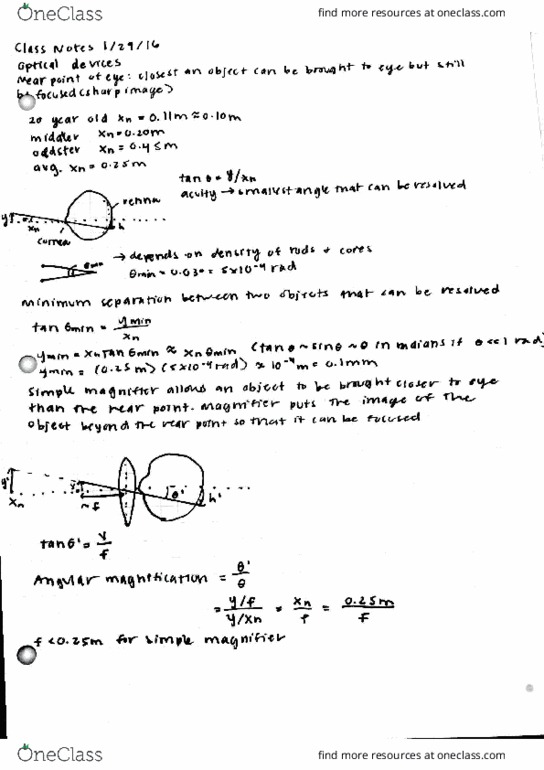 OneClass find more resources at oneclass.com
Class Notes 1/29/16
Optical devices
Near point of eye: closest an object can be brought to eye but still
be focused (sharp image)
20 year old xn = 0.11m ≈ 0.10m
middler xn = 0.20m
oldster xn = 0.45m
avg. xn = 0.25m
tan θ = y/xn
acuity → smallest angle that can be resolved
retina
y
xn
h
cornea
θmin
→ depends on density of rods + cones
θmin = 0.03° = 5x10⁻⁴ rad
minimum separation between two objects that can be resolved
tan θmin = ymin/xn
ymin = xn tan θmin ≈ xn θmin (tan θ ~ sin θ ~ θ in radians if θ << 1 rad)
ymin = (0.25m)(5x10⁻⁴ rad) ≈ 10⁻⁴m = 0.1mm
Simple magnifier allows an object to be brought closer to eye
than the near point. Magnifier puts the image of the
object beyond the near point so that it can be focused
y'
y
θ'
h'
xn
~f
tan θ' = y/f
Angular magnification = θ'/θ
= (y/f)/(y/xn) = xn/f = 0.25m/f
f < 0.25m for simple magnifier
OneClass find more resources at oneclass.com